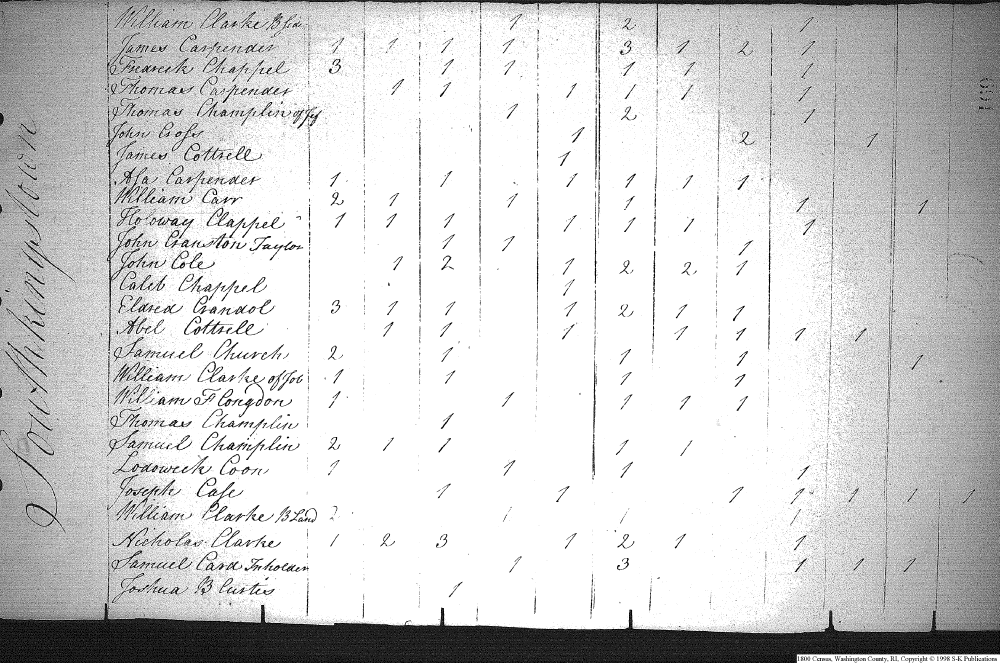 Southkingstown
William Clarke B Side 1 2 1
James Carpender 1 1 1 1 3 1 2 1
Fredrick Chappel 3 1 1 1 1 1
Thomas Carpender 1 1 1 1 1 1
Thomas Champlin of 1 2 1
John Cross 1 2 1
James Cottrell 1
Asa Carpender 1 1 1 1 1 1
William Carr 2 1 1 1 1 1
Holoway Clappel 1 1 1 1 1 1 1
John Cranston Taylor 1 1 1
John Cole 1 2 1 2 2 1
Caleb Chappel 1
Eldred Crandol 3 1 1 1 2 1 1
Abel Cottrell 1 1 1 1 1 1 1
Samuel Church 2 1 1 1 1
William Clarke of Job 1 1 1 1
William F Congdon 1 1 1 1 1
Thomas Champlin 1
Samuel Champlin 2 1 1 1 1
Lodowick Coon 1 1 1 1
Joseph Case 1 1 1 1 1 1 1
William Clarke B Land 2 1 1 1
Nicholas Clarke 1 2 3 1 2 1 1
Samuel Card Inholder 1 3 1 1 1
Joshua B Curtis 1
1800 Census, Washington County, RI, Copyright © 1998 S-K Publications